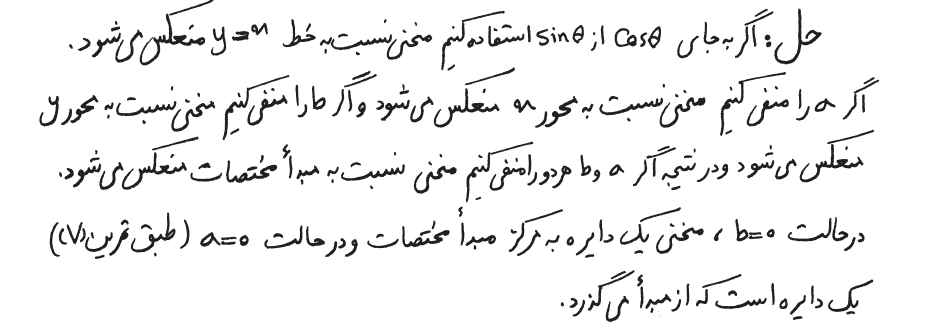 حل: اگر به جای cosθ از sinθ استفاده کنیم منحنی نسبت به خط y=x منعکس می شود.
اگر a را منفی کنیم منحنی نسبت به محور x منعکس می شود و اگر b را منفی کنیم منحنی نسبت به محور y
منعکس می شود و در نتیجه اگر a و b هر دو را منفی کنیم منحنی نسبت به مبدأ مختصات منعکس می شود.
در حالت b=0 ، منحنی یک دایره به مرکز مبدأ مختصات و در حالت a=0 (طبق تمرین (۷))
یک دایره است که از مبدأ می گذرد.